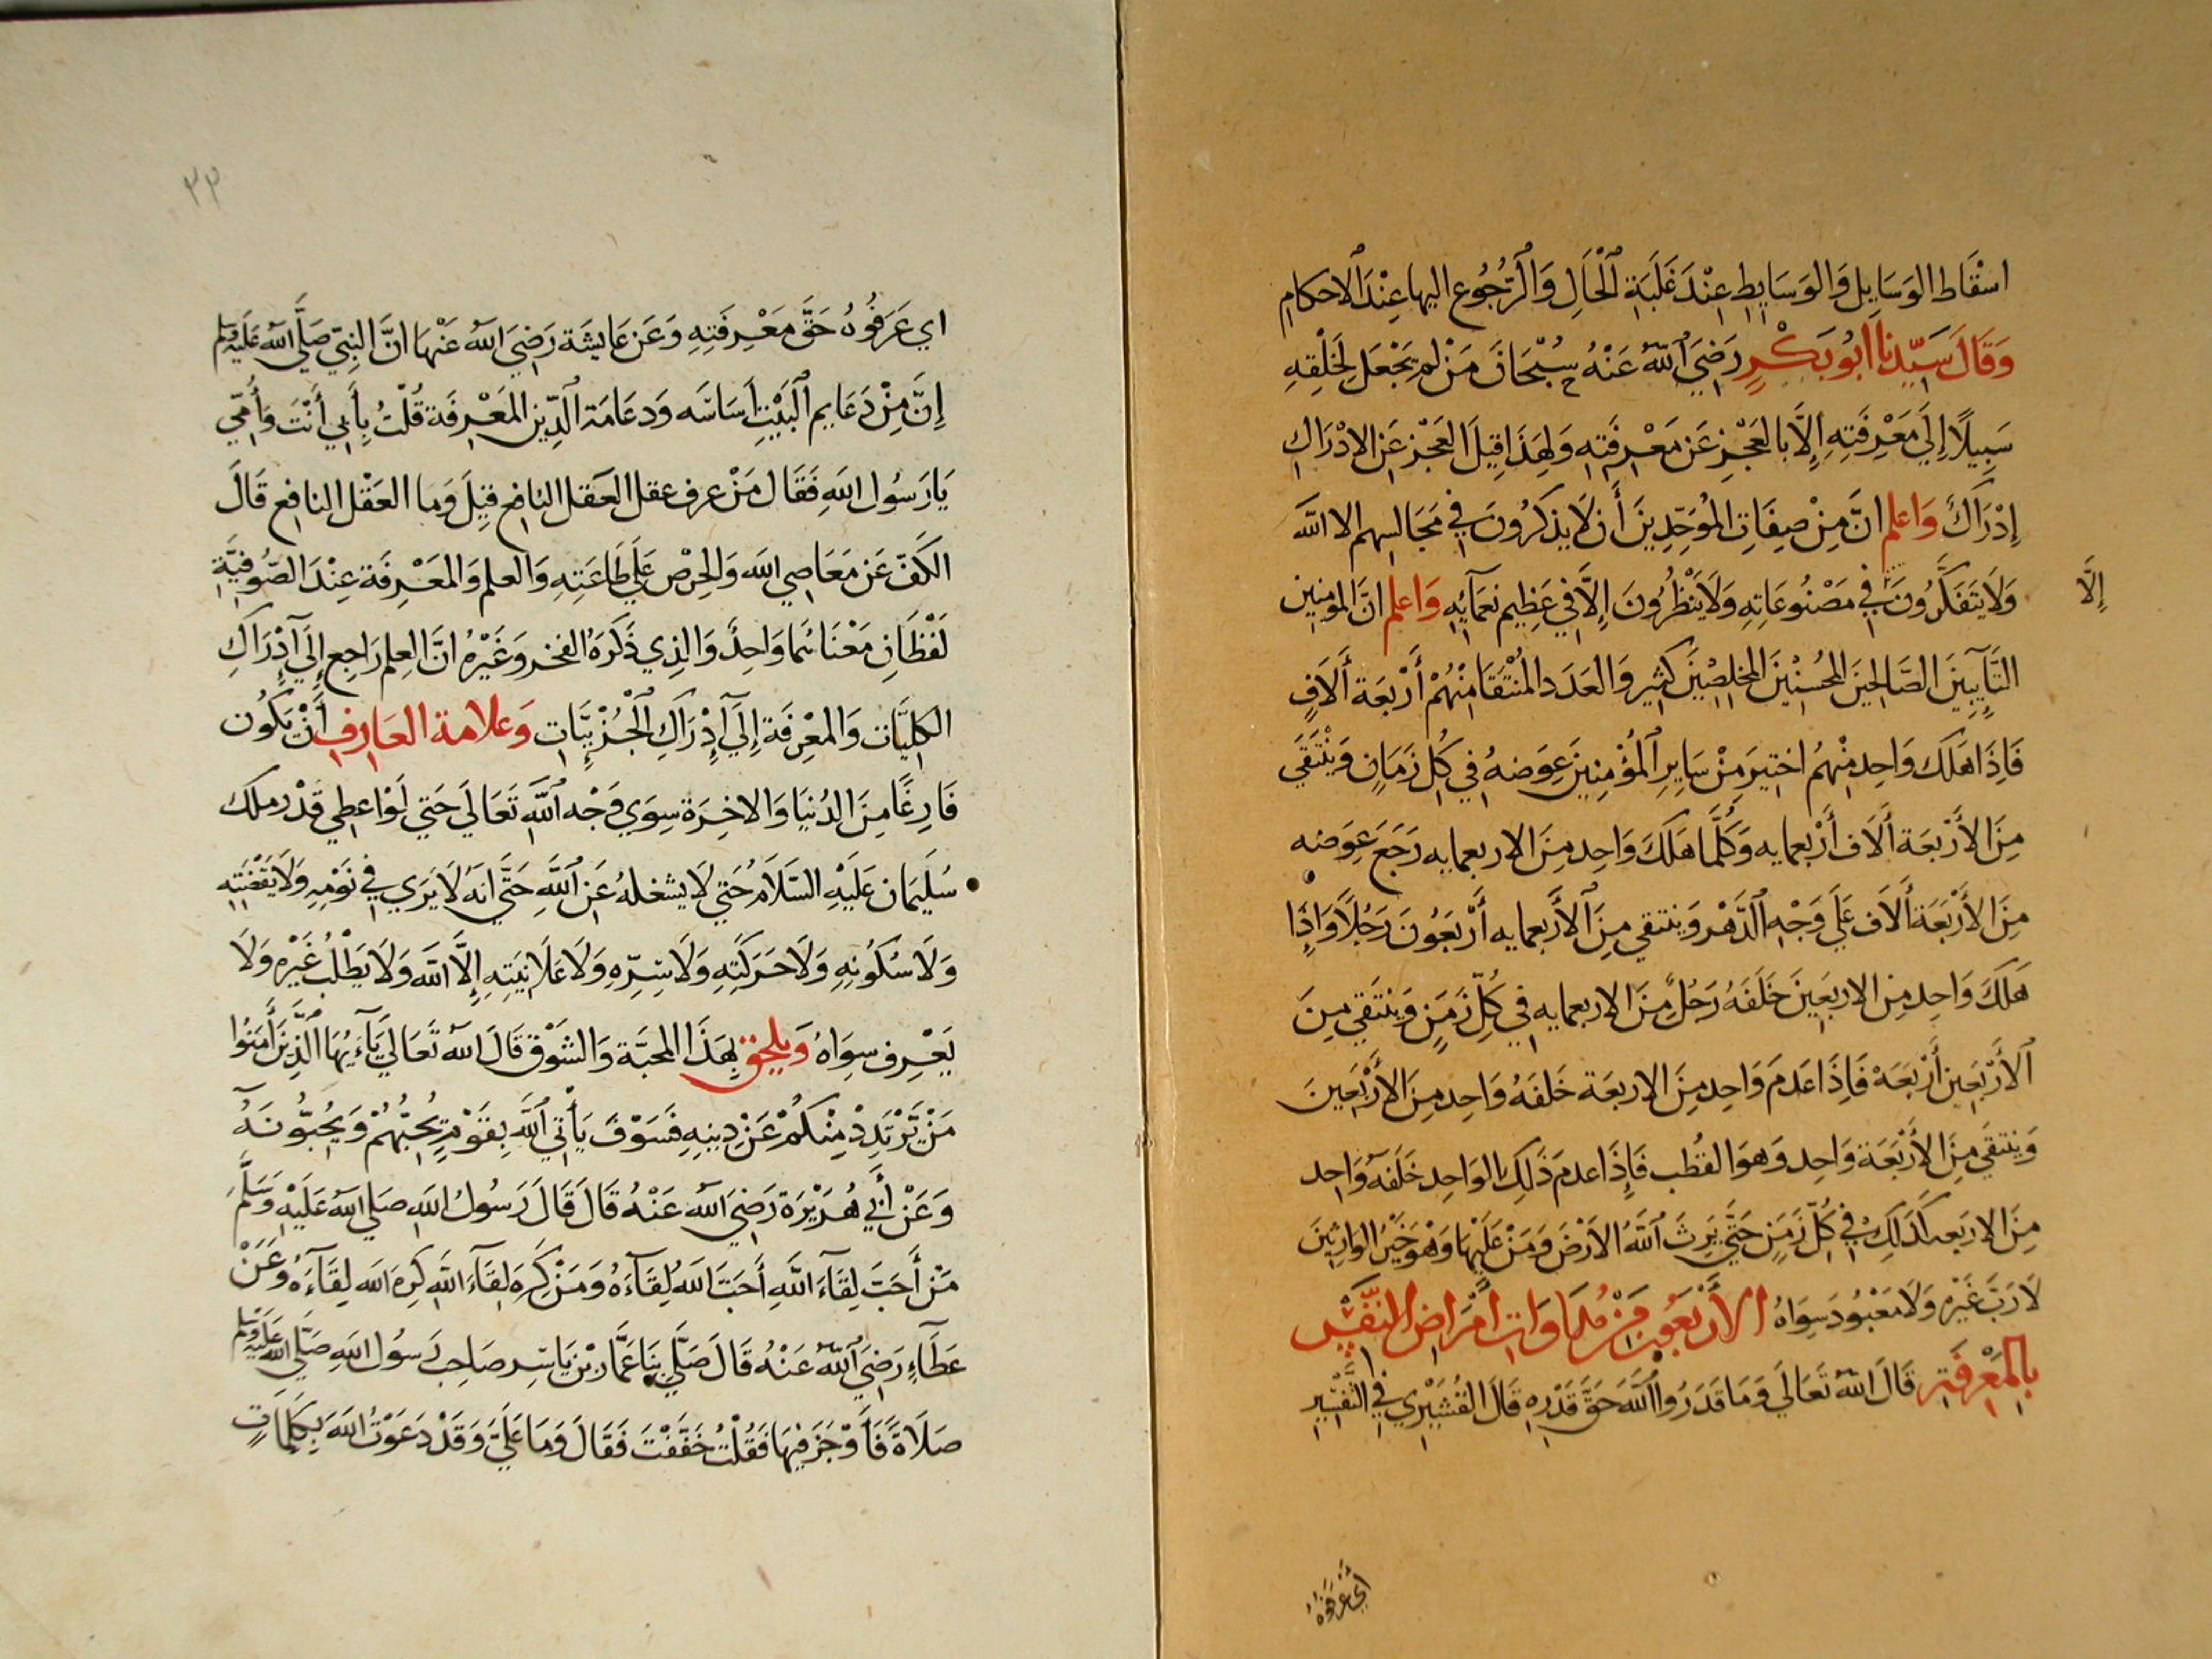 اسْقَاط الوَسَايِل وَالوَسَايِطِ عِنْدَ غَلَبَةِ ٱلْحَالِ وَٱلرُّجُوُعِ اليها عِنْدَ ٱلاحكامِ
وَقَالَ سَيِّدنا ابُو بَكْرٍ رَضِيَ ٱللّهُ عَنْهُ سُبْحَانَ مَنْ لم يَجْعَل لِخَلْقِهِ
سَبِيلًا إِلَي مَعْرِفَتِهِ إِلَّا بالعَجْزِ عَن مَعْرِفَتِهِ وَلِهَذَا قِيلَ العَجْزِ عَن الادْرَاكِ
إِدْرَاكٌ وَاعلم انَّ مِنْ صِفَاتِ المُوَحِّدِينَ أَن لَا يذكرُونَ فِي مَجَالسهم الا اللّه
وَلَا يَتَفَكَّرُونَ فِي مَصْنُوعَاتِهِ وَلَا يَنْظُرُونَ إِلَّا فِي عَظِيم نعمَآيِهِ وَاعلم انَّ المؤمِنِين
إِلَّا
التَّآيِبِينَ الصَّالِحِينَ المُحْسِنِينَ المخلصِينَ كثير وَالعَدَد المُنْتَقَا مِنْهُمْ أَرْبَعَة أَلَافٍ
فَاِذَا هَلَكَ وَاحِد مِنْهِمُ اختيرَ مِنْ سَايِرِ ٱلْمُؤْمِنِينَ عِوَضهُ فِي كُل زَمَانٍ وَيْنْتَقَي
مِنَ الأَرْبَعَة أَلَاف أَرْبعمايه وَكُلَّمَا هَلَكَ وَاحِد مِنَ الاربعمايه رَجَعَ عِوَضه
مِنَ الأَرْبَعَة أَلَاف عَلَي وَجْهِ ٱلدَّهْرِ وَينتقي مِنَ ٱلأَرْبعمايه أَرْبَعُونَ رَجُلًا وَاِذَا
هَلَكَ وَاحِد مِن الاربَعِينَ خَلَفَهُ رَجُلٌ مِنَ الاربعمايه فِي كُلِّ زَمَنٍ وَينْتَقي مِنَ
ٱلأَرْبَعِين أَرْبَعَة فَاِذَا عَدمَ وَاحِد مِنَ الاربعَة خَلفَهُ وَاحِد مِنَ الأَرْبَعِينَ
وَينتقَي مِنَ الأَرْبَعَة وَاحِد وَهوَ القُطب فَاِذَا عدمَ ذَلِكَ الوَاحِد خَلَفَهُ وَاحِد
مِنَ الاربَعه كَذَلِكَ فِي كُلِّ زَمَنٍ حَتَّي يَرِثَ ٱللَّهُ الأَرْضَ وَمَنْ عَلَيْهَا وَهْوَ خَيْرُ الوارِثِينَ
لَا رَبَّ غَيْرُهُ وَلَا مَعْبُود سِوَاهُ الأَرْبَعُون مِنْ مُدَاوَات أَمْرَاض النَّفْسِ
بِالمَعْرِفَةِ قَالَ اللّهُ تَعَالَي وَمَا قَدَرُوا ٱللَّهَ حَقَّ قَدْرِهِ قَالَ القُشَيْرِي فِي التَّفْسِير
أَيْ عَرَفُوهُ
٣٣
اي عَرَفُوهُ حَقَّ مَعْرِفَتِهِ وَعَن عَايشَة رَضِيَ اللّهُ عَنْهَا انَّ النبِيّ صَلَّي اللّه عَلَيْهِ وَسَلَّم
إِنَّ مِنْ دَعَايِم ٱلْبَيْتِ أَسَاسَه وَدعَامَة ٱلدِّين المَعْرِفَة قُلْتُ بِأَبِي أَنْتَ وَأُمِّي
يَا رَسُول اللّهِ فَقَال مَنْ عرف عقل العَقل النافع قِيلَ وَما العَقْل النافِع قَالَ
الكَفّ عَن مَعَاصِي اللّه وَالحِرْص عَلَي طَاعَتِهِ وَالعلم وَالمَعْرِفَة عِنْدَ الصُّوفِيَّةِ
لَفْظَانِ مَعْنَاهُمَا وَاحِدٌ وَالذِي ذَكَرَهُ الفخر وَغَيْرُهُ انَّ العِلم رَاجِع إِلَي آدْرَاكِ
الكلِيَّات وَالمعْرِفَة إِلَي آدْرَاكِ ٱلْجُزْيِيَّات وَعَلامة العَارِف أَنْ يَكُون
فَارِغًا مِنَ الدُنيَا وَالاخِرَة سِوَي وَجْه ٱللَّهِ تَعَالَي حَتي لَوْ اعطِي قَدْر ملك
سُلَيمَان عَلَيْهِ السّلَامُ حَتي لَا يشغلهُ عَنِ ٱللَّهِ حَتَّي انهُ لَا يَرَي فِي نَوْمِهِ وَلَا يَقْظَتِهِ
وَلَا سُكُونِهِ وَلَا حَرَكَتِهِ وَلَا سِرِّهِ وَلَا عَلَانِيَتِهِ إِلَّا اللّه وَلَا يَطْلُبُ غَيْرُه وَلَا
يَعْرِف سِوَاهُ وَيلحق بِهَذَا المحَبَّة وَالشَّوْق قَالَ اللّه تَعَالَي يَآءَيُّهَا ٱلَّذِينَ أَمَنُوا
مَنْ يَّرْتَدِدْ مِنْكُمْ عَنْ دِينِهِ فَسَوْفَ يَأْتِي ٱللَّهُ بِقَوْمٍ يُحِبُّهُمْ وَيُحِبُّونَهُ
وَعَنْ أَبِي هُرَيْرَة رَضِيَ اللّه عَنْهُ قَالَ قَالَ رَسُولُ اللّهِ صَلي اللّه عَلَيْهِ وَسَلَّمَ
مَنْ أَحَبَّ لِقَآءَ اللَّهِ أَحَبَّ اللّهُ لِقَآءَهُ وَمَنْ كَرِهَ لِقَآءَ اللّهِ كَرِهَ اللّه لِقَآءَهُ وَعَنْ
عَطَآءٍ رَضِيَ ٱللّهُ عَنْهُ قَالَ صَلَّي بِنَا عَمَّار بْن يَاسِر صَاحِب رَسُول اللّهِ صَلَّي اللّه عَلَيْهِ وَسَلَّم
صَلَاةً فَأَوْجَزَ فِيهَا فَقُلْتُ خَفَّفْتَ فَقَالَ وَمَا عَلَيَّ وَقَدْ دَعَوْتُ اللّهَ بِكَلِمَاتٍ